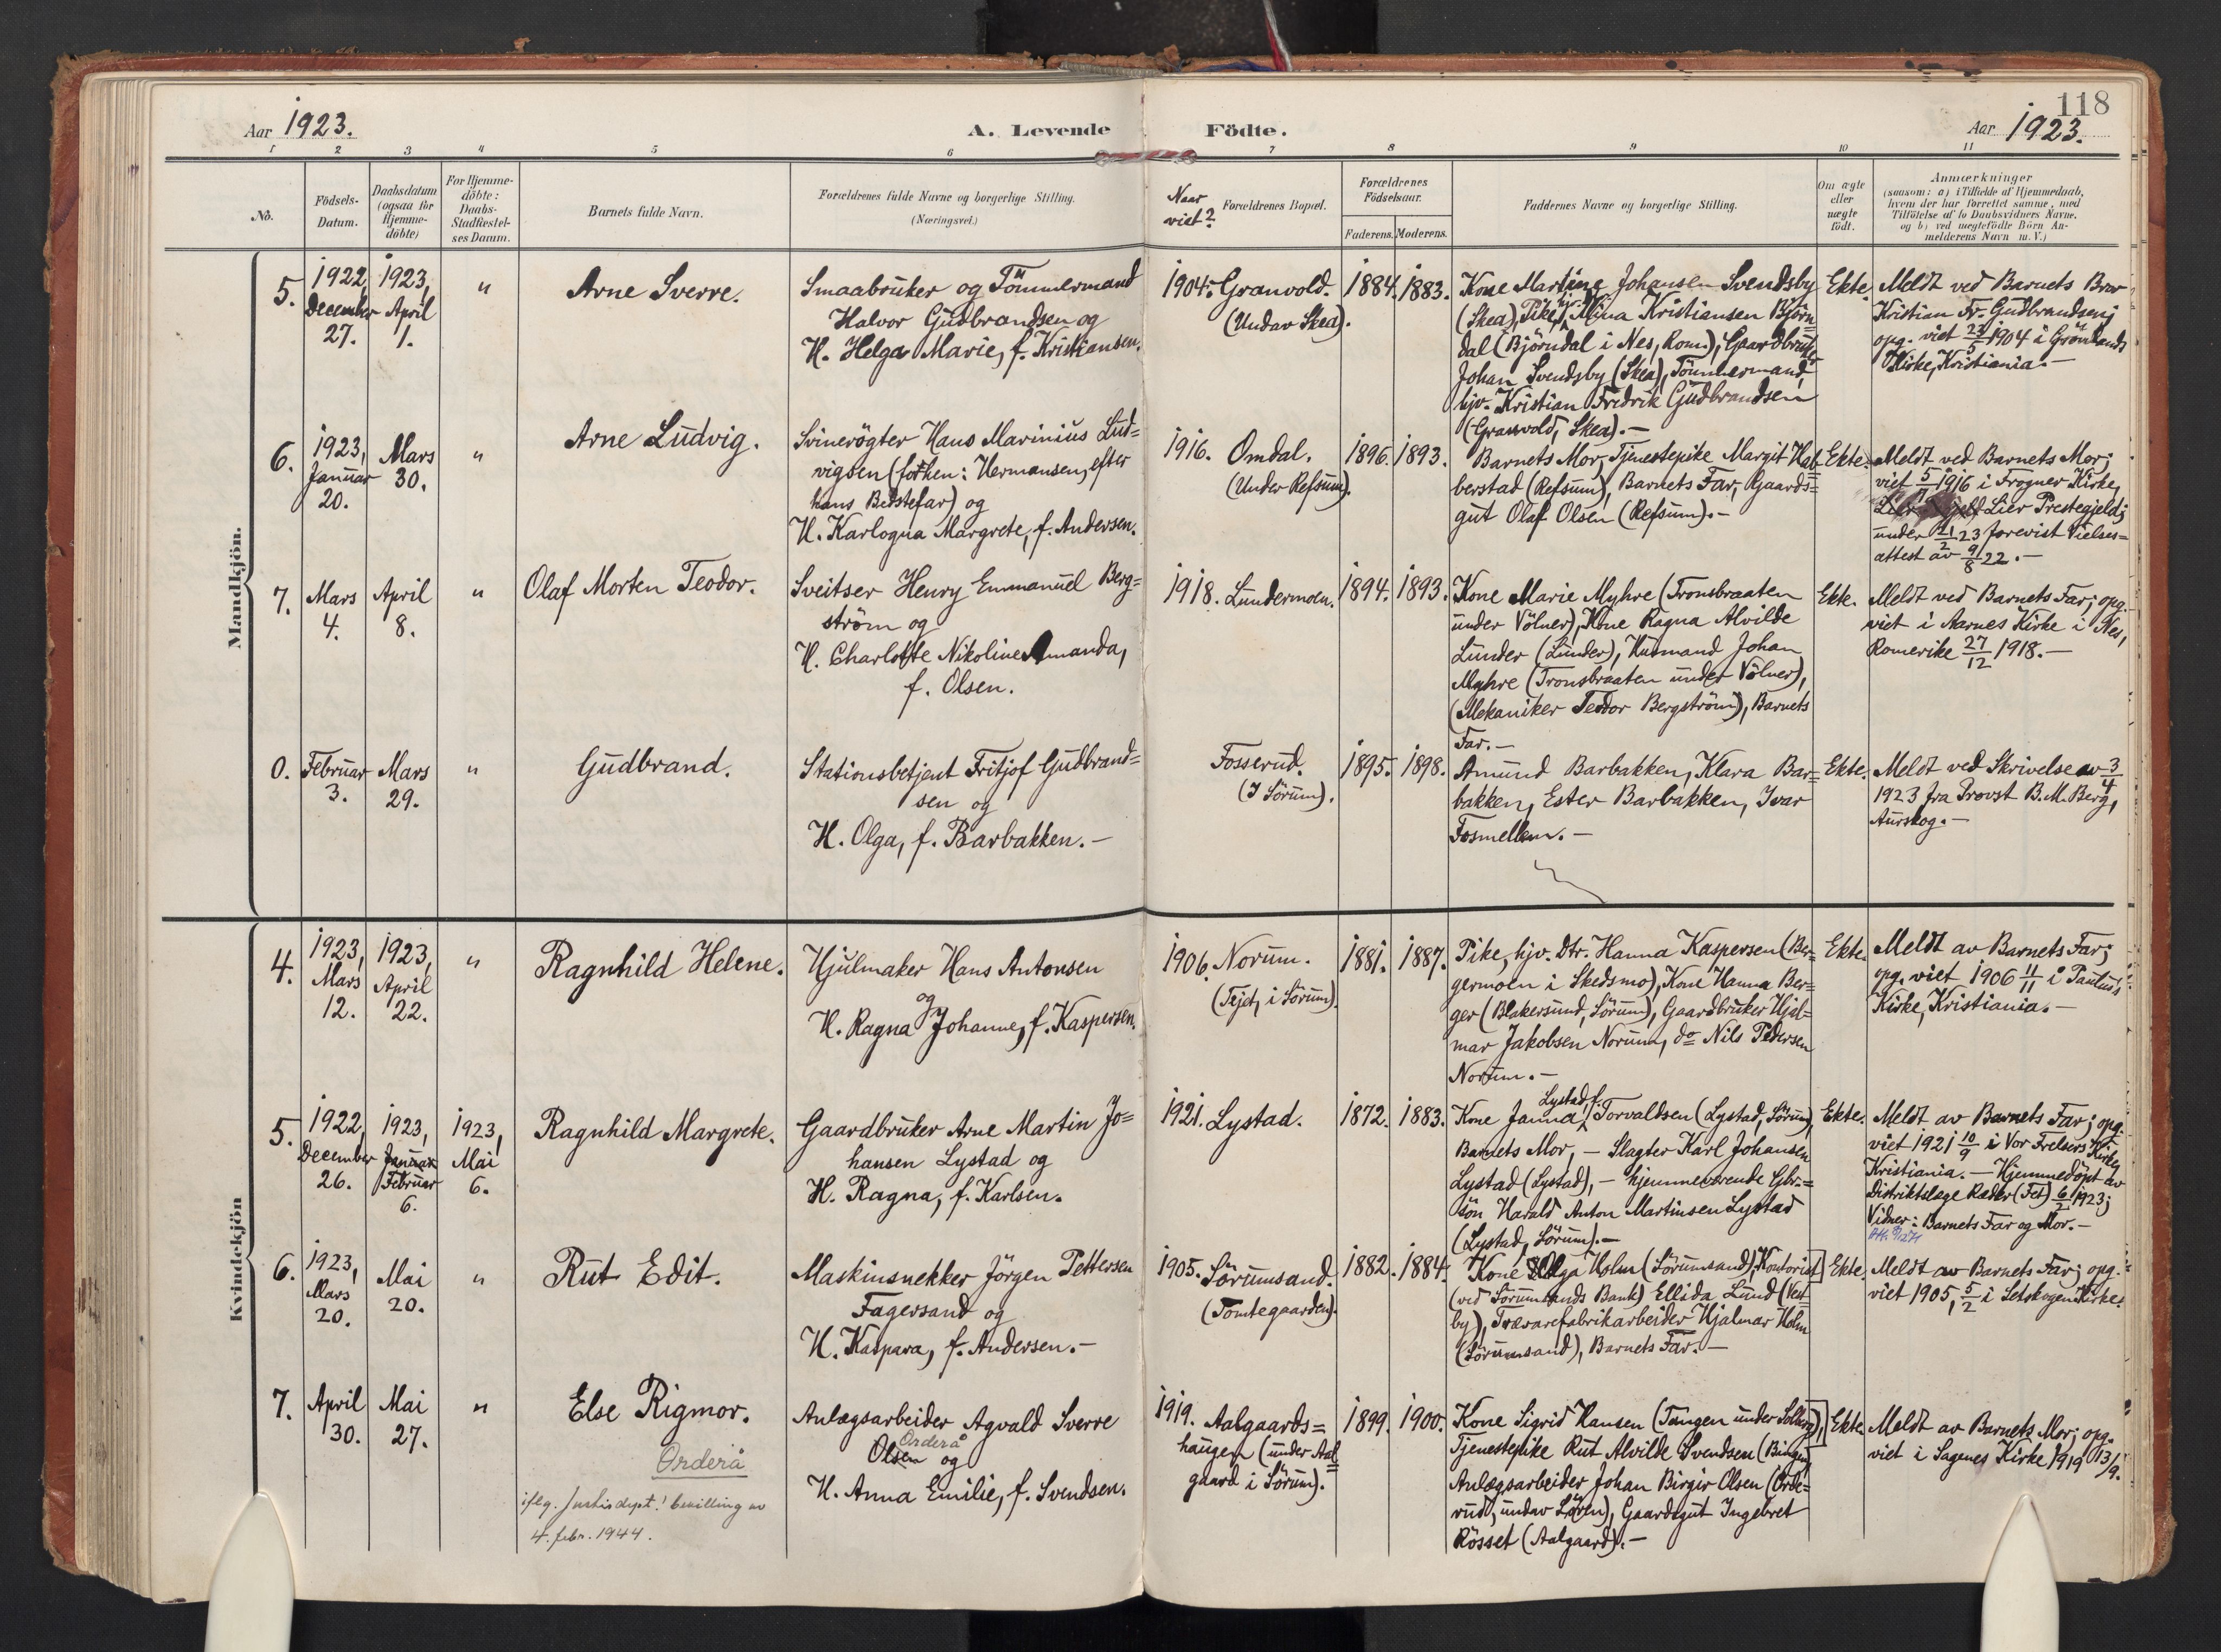 118
Aar 1923.
A. Levende Födte.
Aar 1923.
1 2 3 4 5 6 7 8 9 10 11
No.
Födsels-
Datum.
Daabsdatum
(ogsaa for
Hjemme-
döbte)
For Hjemme-
döbte:
Daabs-
Stadfæstel-
ses Datum.
Barnets fulde Navn.
Forældrenes fulde Navne og borgerlige Stilling.
(Næringsvei.)
Naar
viet?
Forældrenes Bopæl.
Forældrenes
Födselsaar.
Faderens. Moderens.
Faddernes Navne og borgerlige Stilling.
Om ægte
eller
uægte
födt.
Anmærkninger
(saasom: a) i Tilfælde af Hjemmedaab,
hvem der har forrettet samme, med
Tilföielse af to Daabsvidners Navne.
og b) ved uegtefödte Börn An-
melderens Navn m. V.)
Mandkjön.
5.
1922,
December
27.
1923,
April
1.
"
Arne Sverre.
Smaabruker og Tömmermand
Halvor Gudbrandsen og
H. Helga Marie, f. Kristiansen.
1904.
Granvold.
(Under Skea).
1884.
1883.
Kone Martine Johansen Svendsby
(Skea), Pike, hjv. Mina Kristiansen Björn=
dal (Björndal i Nes, Rom), Gaardbruker
Johan Svendsby (Skea), Tömmermand,
hjv. Kristian Fredrik Gudbrandsen
(Granvold, Skea). —
Ekte.
Meldt ved Barnets Bror
Kristian Fr. Gudbrandsen;
opg. viet 1904 i Grönlands
Kirke, Kristiania. —
6.
1923,
Januar
20.
Mars
30.
"
Arne Ludvig.
Svinerögter Hans Marinius Lud=
vigsen (forhen: Hermansen, efter
hans Bedstefar) og
H. Karlogna Margrete, f. Andersen.
1916.
Omdal.
(Under Refsum).
1896.
1893.
Barnets Mor, Tjenestepike Margit Hab=
berstad (Refsum), Barnets Far, Gaards=
gut Olaf Olsen (Refsum). —
Ekte.
Meldt ved Barnets Mor;
viet 1916 i Frogner Kirke,
Lier Prestegjeld;
under 21/2 23 forevist Vielses=
attest av 9/8 22. —
7.
Mars
4.
April
8.
"
Olaf Morten Teodor.
Sveitser Henry Emmanuel Berg=
ström og
H. Charlotte Nikoline Amanda,
f. Olsen.
1918.
Lundermoen.
1894.
1893.
Kone Marie Myhre (Tronsbraaten
under Völner), Kone Ragna Alvilde
Lunder (Lunder), Husmand Johan
Myhre (Tronsbraaten under Völner),
(Mekaniker Teodor Bergström), Barnets
Far. —
Ekte.
Meldt ved Barnets Far; opg.
viet i Aarnes Kirke i Nes,
Romerike 27/12 1918. —
0.
Februar
3.
Mars
29.
"
Gudbrand.
Stationsbetjent Fritjof Gudbrand=
sen og
H. Olga, f. Barbakken. —
Fosserud.
(I Sörum).
1895.
1898.
Amund Barbakken, Klara Bar=
bakken, Ester Barbakken, Ivar
Fosmellem. —
Ekte.
Meldt ved Skrivelse av 3/4
1923 fra Provst B. M. Berg,
Aurskog. —
Kvindekjön
4.
1923,
Mars
12.
1923,
April
22.
"
Ragnhild Helene.
Hjulmaker Hans Antonsen
og
H. Ragna Johanne, f. Kaspersen.
1906.
Norum.
(Fejd, i Sörum).
1881.
1887.
Pike, hjv. Dtr. Hanna Kaspersen (Ber=
germoen i Skedsmo), Kone Hanna Ber=
ger (Blakersund, Sörum), Gaardbruker Hjal=
mar Jakobsen Norum, do Nils Pedersen
Norum. —
Ekte.
Meldt av Barnets Far;
opg. viet 1906 11/11 i Paulus's
Kirke, Kristiania. —
5.
1922,
December
26.
1923,
Januar
Februar
6.
1923,
Mai
6.
Ragnhild Margrete.
Gaardbruker Arne Martin Jo=
hansen Lystad og
H. Ragna, f. Karlsen.
1921.
Lystad.
1872.
1883.
Lystad, f.
Kone Janna Torvaldsen (Lystad, Sörum),
Barnets Mor, — Slagter Karl Johansen
Lystad (Lystad), — hjemmeværende Gbr.=
sön Harald Anton Martinsen Lystad
(Lystad, Sörum). —
Ekte.
Meldt av Barnets Far; opg.
viet 1921 10/9 i Vor Frelsers Kirke,
Kristiania. — Hjemmedöpt av
Distriktslæge Ræder (Fet) 6/2 1923;
Vidner: Barnets Far og Mor. —
6.
1923,
Mars
20.
Mai
20.
"
Rut Edit.
Maskinsnekker Jörgen Pettersen
Fagersand og
H. Kaspara, f. Andersen. —
1905.
Sörumsand.
(Tomtegaarden).
1882.
1884.
Kone Olga Holm (Sörumsand), Kontorist
(ved Sörumsands Bank) Ellida Lund (Vest=
by), Trævarefabrikarbeider Hjalmar Holm
(Sörumsand), Barnets Far. —
Ekte.
Meldt av Barnets Far; opg.
viet 1905, 5/2 i Setskogen Kirke.
7.
April
30.
Mai
27.
"
Else Rigmor.
Orderå
iflg. Justisdept.' bevilling av
4. febr. 1944.
Anlægsarbeider Agvald Sverre
Orderå
Olsen og
H. Anna Emilie, f. Svendsen.
1919.
Aalgaards=
haugen (under Aal=
gaard i Sörum).
1899.
1900.
Kone Sigrid Hansen (Tangen under Solberg),
Tjenestepike Rut Alvilde Svendsen (Bingen)
Anlægsarbeider Johan Birgir Olsen (Orde=
rud, under Lören), Gaardsgut Ingebret
Rösset (Aalgaard). —
Ekte.
Meldt av Barnets Mor; opg.
viet i Sagenes Kirke 1919 13/9.